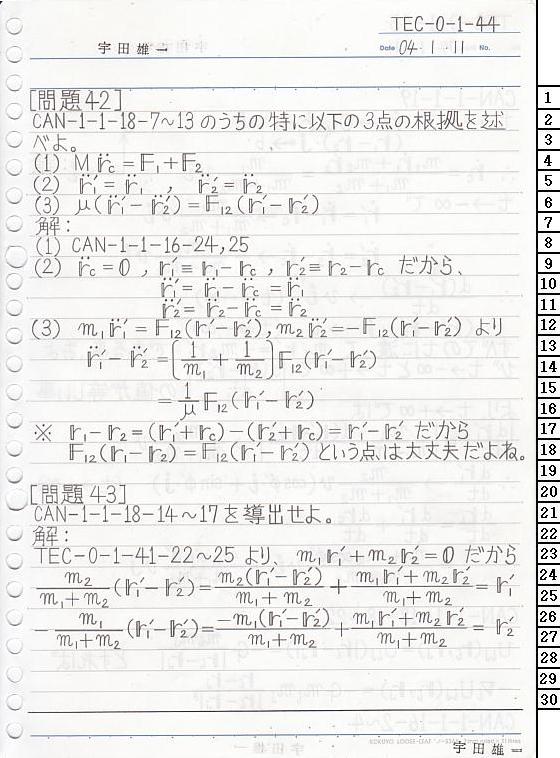 TEC-0-1-44
宇田雄一
Date 04・1・11 No.
[問題42]
CAN-1-1-18-7〜13のうちの特に以下の3点の根拠を述
べよ。
(1) M r̈c = F₁ + F₂
(2) r̈₁′ = r̈₁ , r̈₂′ = r̈₂
(3) μ(r̈₁′ − r̈₂′) = F₁₂(r₁′ − r₂′)
解:
(1) CAN-1-1-16-24,25
(2) r̈c = 0 , r₁′ ≡ r₁ − rc , r₂′ ≡ r₂ − rc だから、
r̈₁′ = r̈₁ − r̈c = r̈₁
r̈₂′ = r̈₂ − r̈c = r̈₂
(3) m₁r̈₁′ = F₁₂(r₁′ − r₂′), m₂r̈₂′ = −F₁₂(r₁′ − r₂′) より
r̈₁′ − r̈₂′ = [1/m₁ + 1/m₂] F₁₂(r₁′ − r₂′)
= 1/μ F₁₂(r₁′ − r₂′)
※ r₁ − r₂ = (r₁′ + rc) − (r₂′ + rc) = r₁′ − r₂′ だから
F₁₂(r₁ − r₂) = F₁₂(r₁′ − r₂′) という点は大丈夫だよね。
[問題43]
CAN-1-1-18-14〜17を導出せよ。
解:
TEC-0-1-41-22〜25 より、 m₁r₁′ + m₂r₂′ = 0 だから
m₂/(m₁+m₂) (r₁′ − r₂′) = m₂(r₁′ − r₂′)/(m₁+m₂) + (m₁r₁′ + m₂r₂′)/(m₁+m₂) = r₁′
−m₁/(m₁+m₂) (r₁′ − r₂′) = −m₁(r₁′ − r₂′)/(m₁+m₂) + (m₁r₁′ + m₂r₂′)/(m₁+m₂) = r₂′
宇田雄一
1
2
3
4
5
6
7
8
9
10
11
12
13
14
15
16
17
18
19
20
21
22
23
24
25
26
27
28
29
30